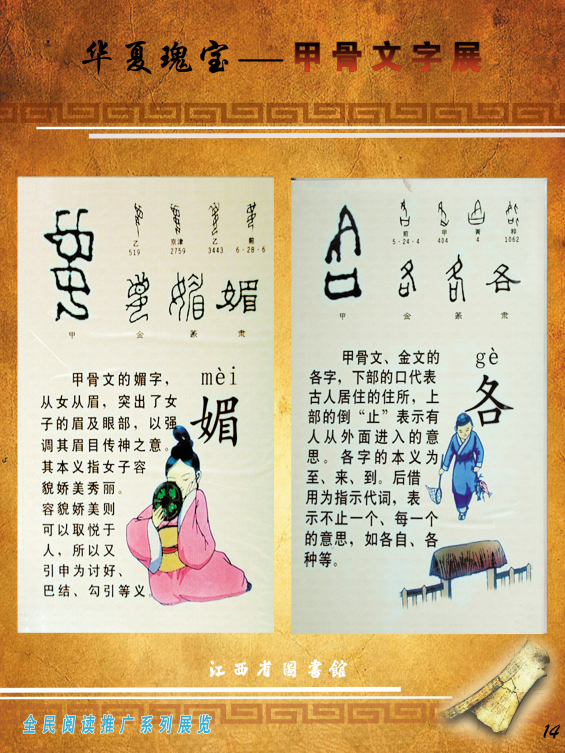 华夏瑰宝——甲骨文字展
乙 京津 乙 前
519 2759 3443 6·28·6
甲 金 篆 隶
mèi
媚
甲骨文的媚字，
从女从眉，突出了女
子的眉及眼部，以强
调其眉目传神之意。
其本义指女子容
貌娇美秀丽。
容貌娇美则
可以取悦于
人，所以又
引申为讨好、
巴结、勾引等义。
前 甲 菁 粹
5·24·4 404 4 1062
甲 金 篆 隶
gè
各
甲骨文、金文的
各字，下部的口代表
古人居住的住所，上
部的倒“止”表示有
人从外面进入的意
思。各字的本义为
至、来、到。后借
用为指示代词，表
示不止一个、每一个
的意思，如各自、各
种等。
江西省图書館
全民阅读推广系列展览
14